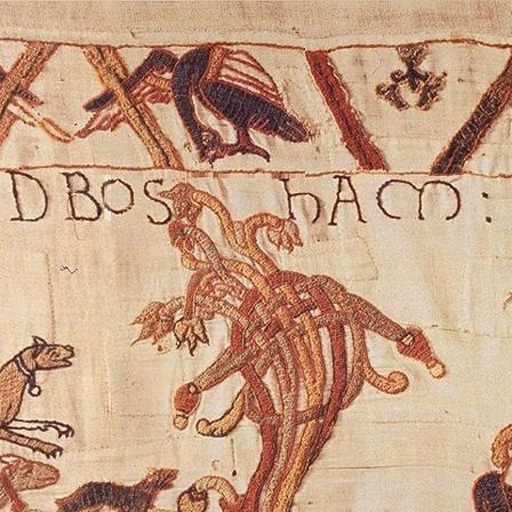 D BOS hAM :